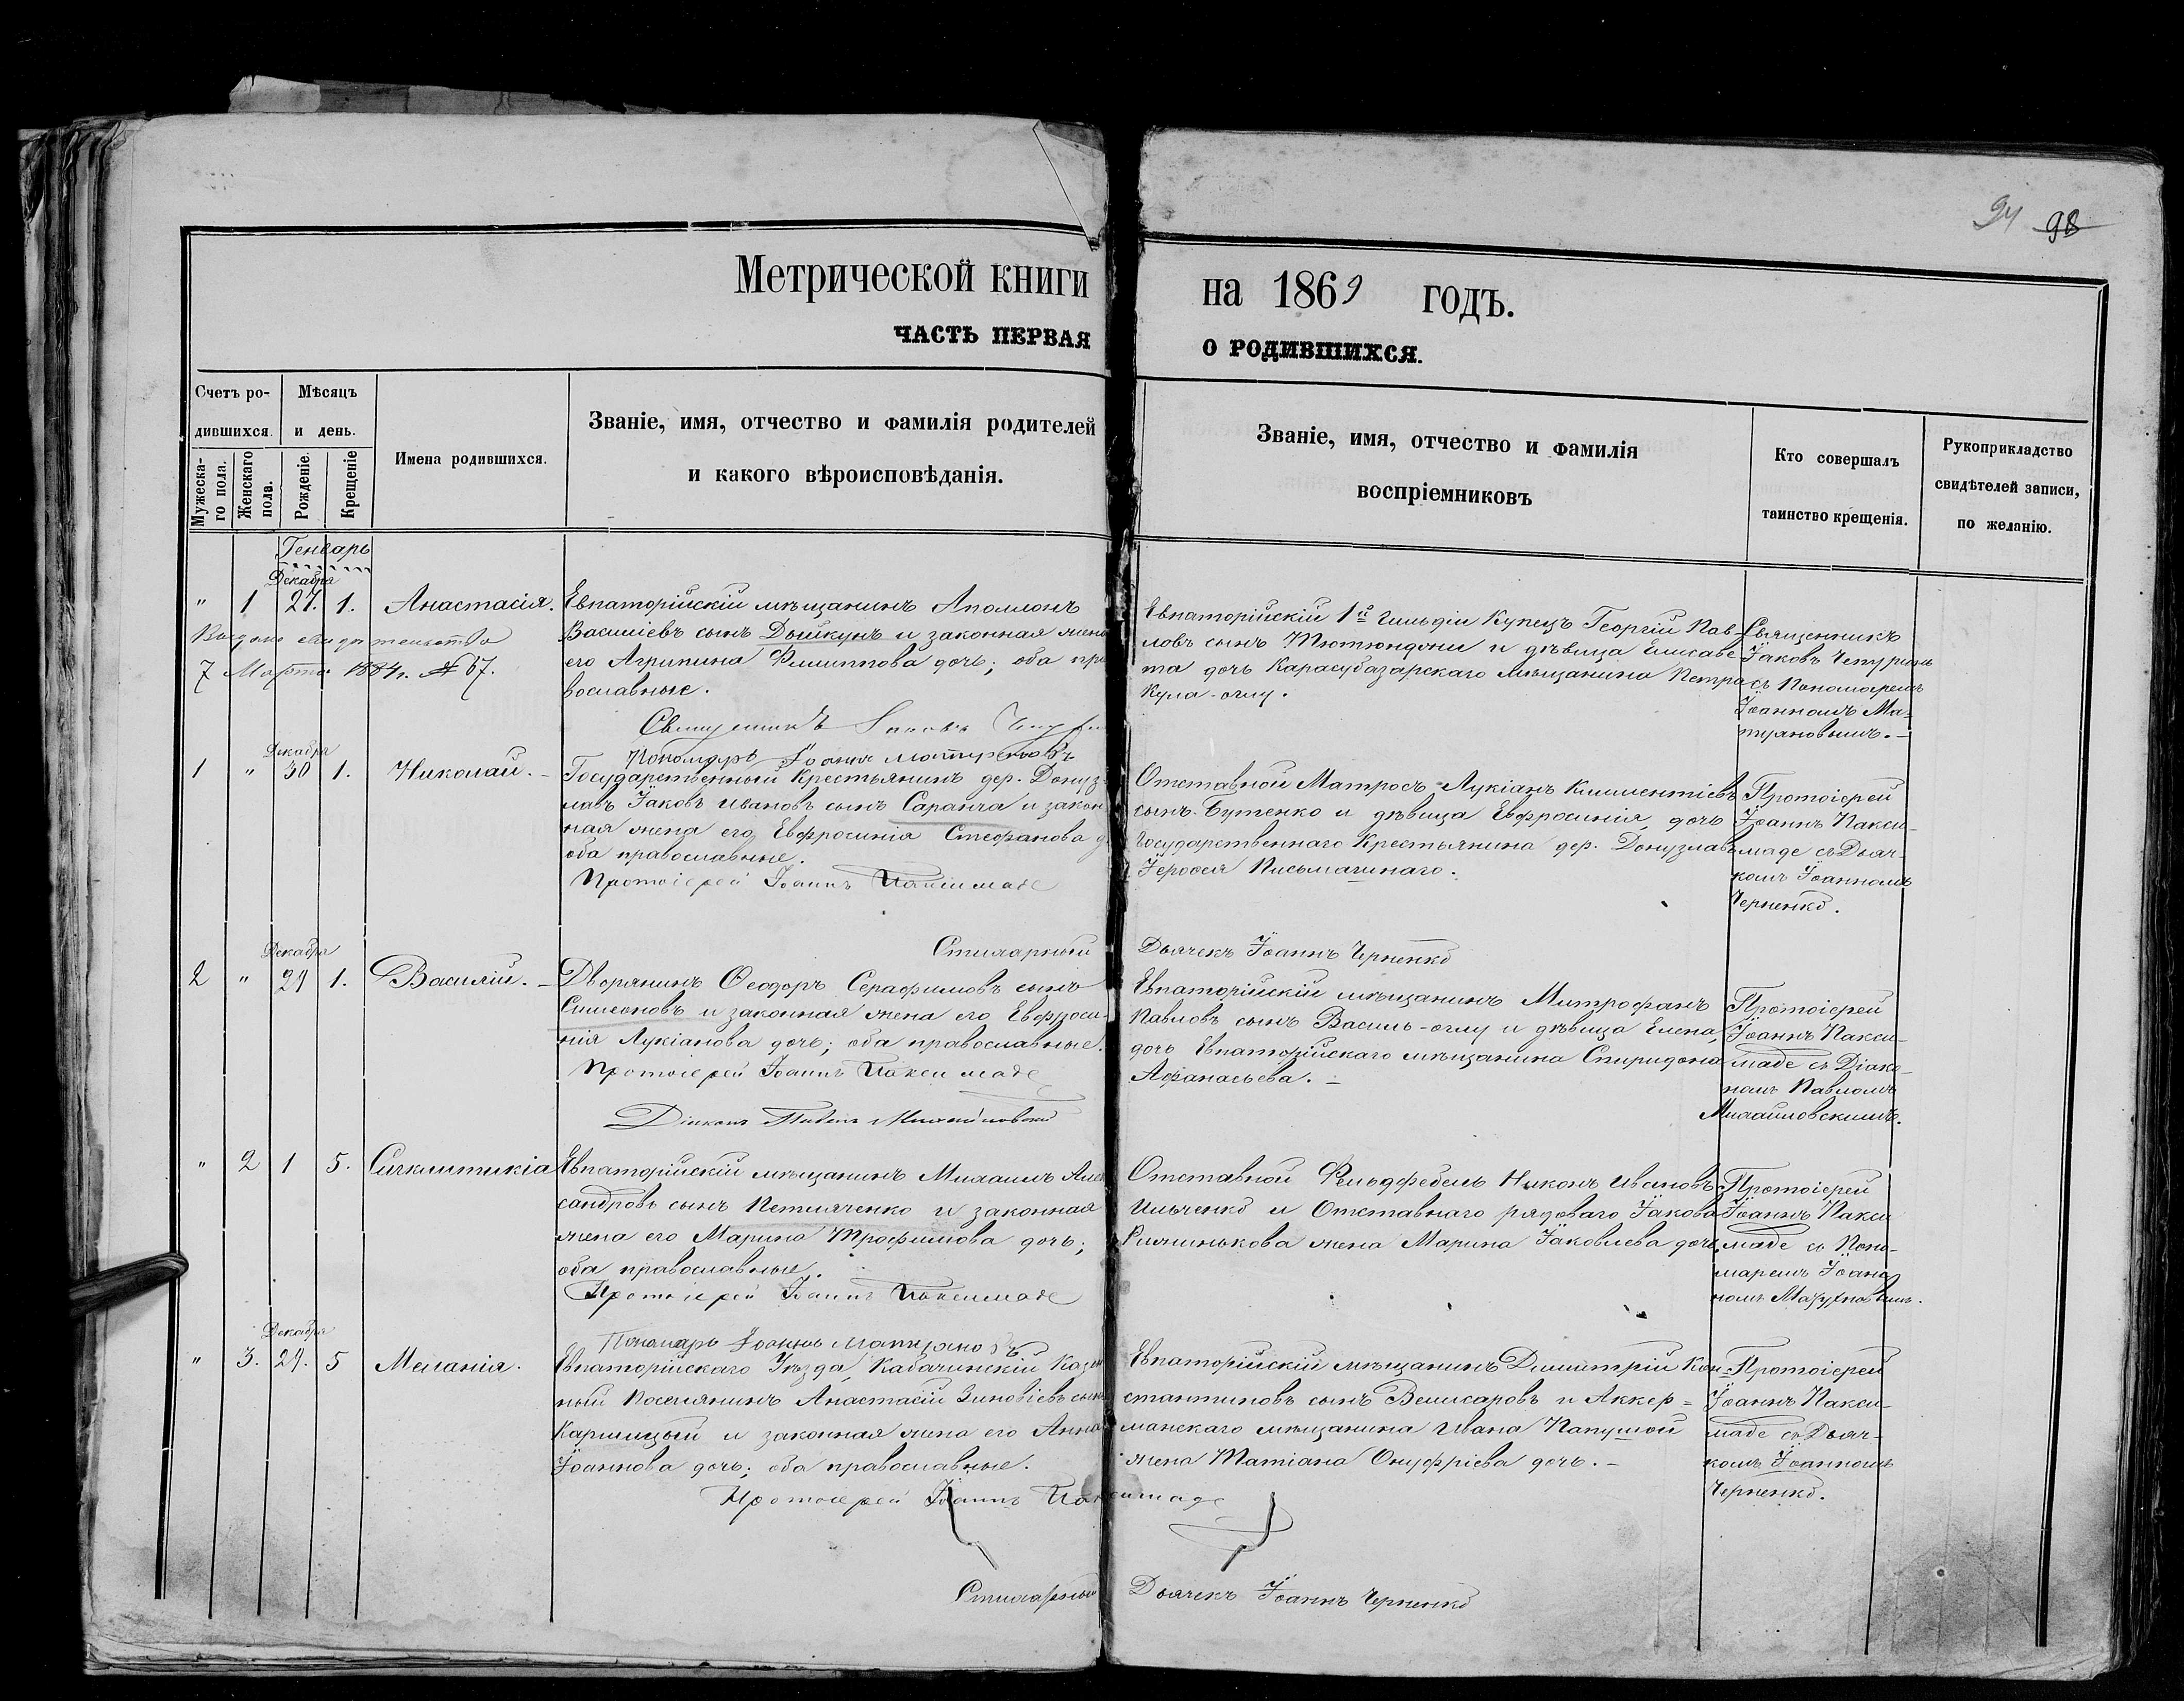 94 98
Метрической книги на 1869 годъ.
ЧАСТЬ ПЕРВАЯ О РОДИВШИХСЯ.
Счетъ родившихся.
Мѣсяцъ и день.
Мужескаго пола.
Женскаго пола.
Рожденіе.
Крещеніе
Имена родившихся.
Званіе, имя, отчество и фамилія родителей
и какого вѣроисповѣданія.
Званіе, имя, отчество и фамилія
воспріемниковъ
Кто совершалъ
таинство крещенія.
Рукоприкладство
свидѣтелей записи,
по желанію.
Генварь
Декабря
" 1 27. 1. Анастасія.
Выдано свидѣтельство
7 Марта 1884г. № 67.
Евпаторійскій мѣщанинъ Аполлонъ
Василіевъ сынъ Дышкунъ и законная жена
его Агрипина Филиппова дочь; оба пра
вославные.
Священникъ
Пономарь Іоаннъ
Евпаторійскій 1й Гильдіи Купецъ Георгій Пав-
ловъ сынъ Тютюнджи и дѣвица Елисаве-
та дочь Карасубазарскаго мѣщанина Петра
Кула-оглу.
Священникъ
Іаковъ Чепуринъ
съ Пономаремъ
Іоанномъ Ма-
Декабря
1 " 30 1. Николай.
Государственный Крестьянинъ дер. Донуз
лавъ Іаковъ Ивановъ сынъ Саранча и закон
ная жена его Евфросинія Стефанова д
оба православные.
Протоіерей Іоаннъ Паксимаде
Отставной Матросъ Лукіанъ Климентіевъ
сынъ Бутенко и дѣвица Евфросинія, дочь
Государственнаго Крестьянина дер. Донузлавъ
Іероѳея Письмагинаго.
Протоіерей
Іоаннъ Пакси-
маде съ Дьяч-
комъ Іоанномъ
Черненко.
Стихарный Дьячекъ Іоаннъ Черненко
Декабря
2 " 29 1. Василій.
Дворянинъ Ѳеодоръ Серафимовъ сынъ
Симеоновъ и законная жена его Евфроси-
нія Лукіанова дочь; оба православные.
Протоіерей Іоаннъ Паксимаде
Діаконъ Павелъ Михайловскій
Евпаторійскій мѣщанинъ Митрофанъ
Павловъ сынъ Василь-оглу и дѣвица Елена,
дочь Евпаторійскаго мѣщанина Спиридона
Аѳанасьева.
Протоіерей
Іоаннъ Пакси-
маде съ Діако-
номъ Павломъ
Михайловскимъ.
" 2 1 5. Сигклитикіа
Евпаторійскій мѣщанинъ Михаилъ Алек
сандровъ сынъ Петляченко и законная
жена его Марина Трофимова дочь;
оба православные.
Протоіерей Іоаннъ Паксимаде
Отставной Фельдфебель Никонъ Ивановъ
Ильченко и Отставнаго рядоваго Іакова
жена Марина Іаковлева дочь.
Протоіерей
Іоаннъ Пакси
маде съ Поно-
маремъ Іоан
номъ
Пономарь Іоаннъ
Декабря
" 3. 29. 5 Меланія.
Евпаторійскаго Уѣзда, Кабачинскій Казен
ный Поселянинъ Анастасій Зиновіевъ сынъ
и законная жена его Анна
Іоаннова дочь; оба православные.
Протоіерей Іоаннъ Паксимаде
Евпаторійскій мѣщанинъ Димитрій Кон-
стантиновъ сынъ Велисаровъ и Аккер-
манскаго мѣщанина Ивана Папушой
жена Татіана Онуфріева дочь.
Протоіерей
Іоаннъ Пакси-
маде съ Дьяч-
комъ Іоанномъ
Черненко.
Стихарный Дьячекъ Іоаннъ Черненко